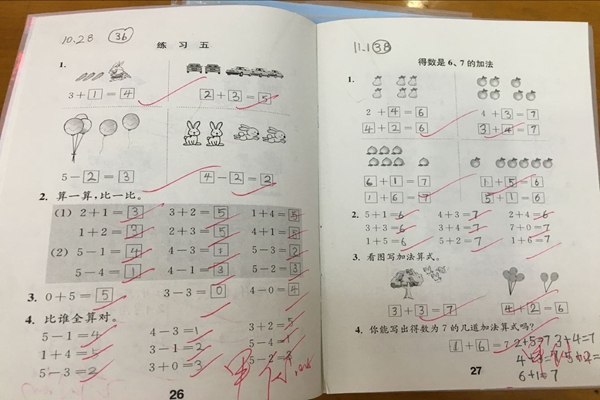 10.28 36
练 习 五
1.
3+1=4 2+3=5
5-2=3 4-2=2
2. 算一算,比一比。
(1) 2+1=3 3+2=5 1+4=5
1+2=3 2+3=5 4+1=5
(2) 5-1=4 4-3=1 5-3=2
5-4=1 4-1=3 5-2=3
3. 0+5=5 3-3=0 4-0=4
4. 比谁全算对。
5-1=4 4-3=1 3+2=5
1+4=5 3-2=1 5-4=1
5-3=2 3+0=3 5-2=3
26
11.1 38
得数是6、7的加法
1.
2+4=6 4+3=7
4+2=6 3+4=7
6+1=7 1+5=6
1+6=7 5+1=6
2. 5+1=6 4+3=7 2+4=6
3+3=6 3+4=7 7+0=7
1+5=6 5+2=7 1+6=7
3. 看图写加法算式。
3+3=7 4+2=6
4. 你能写出得数为7的几道加法算式吗?
1+6=7 2+5=7 3+4=7
6+1=7
27